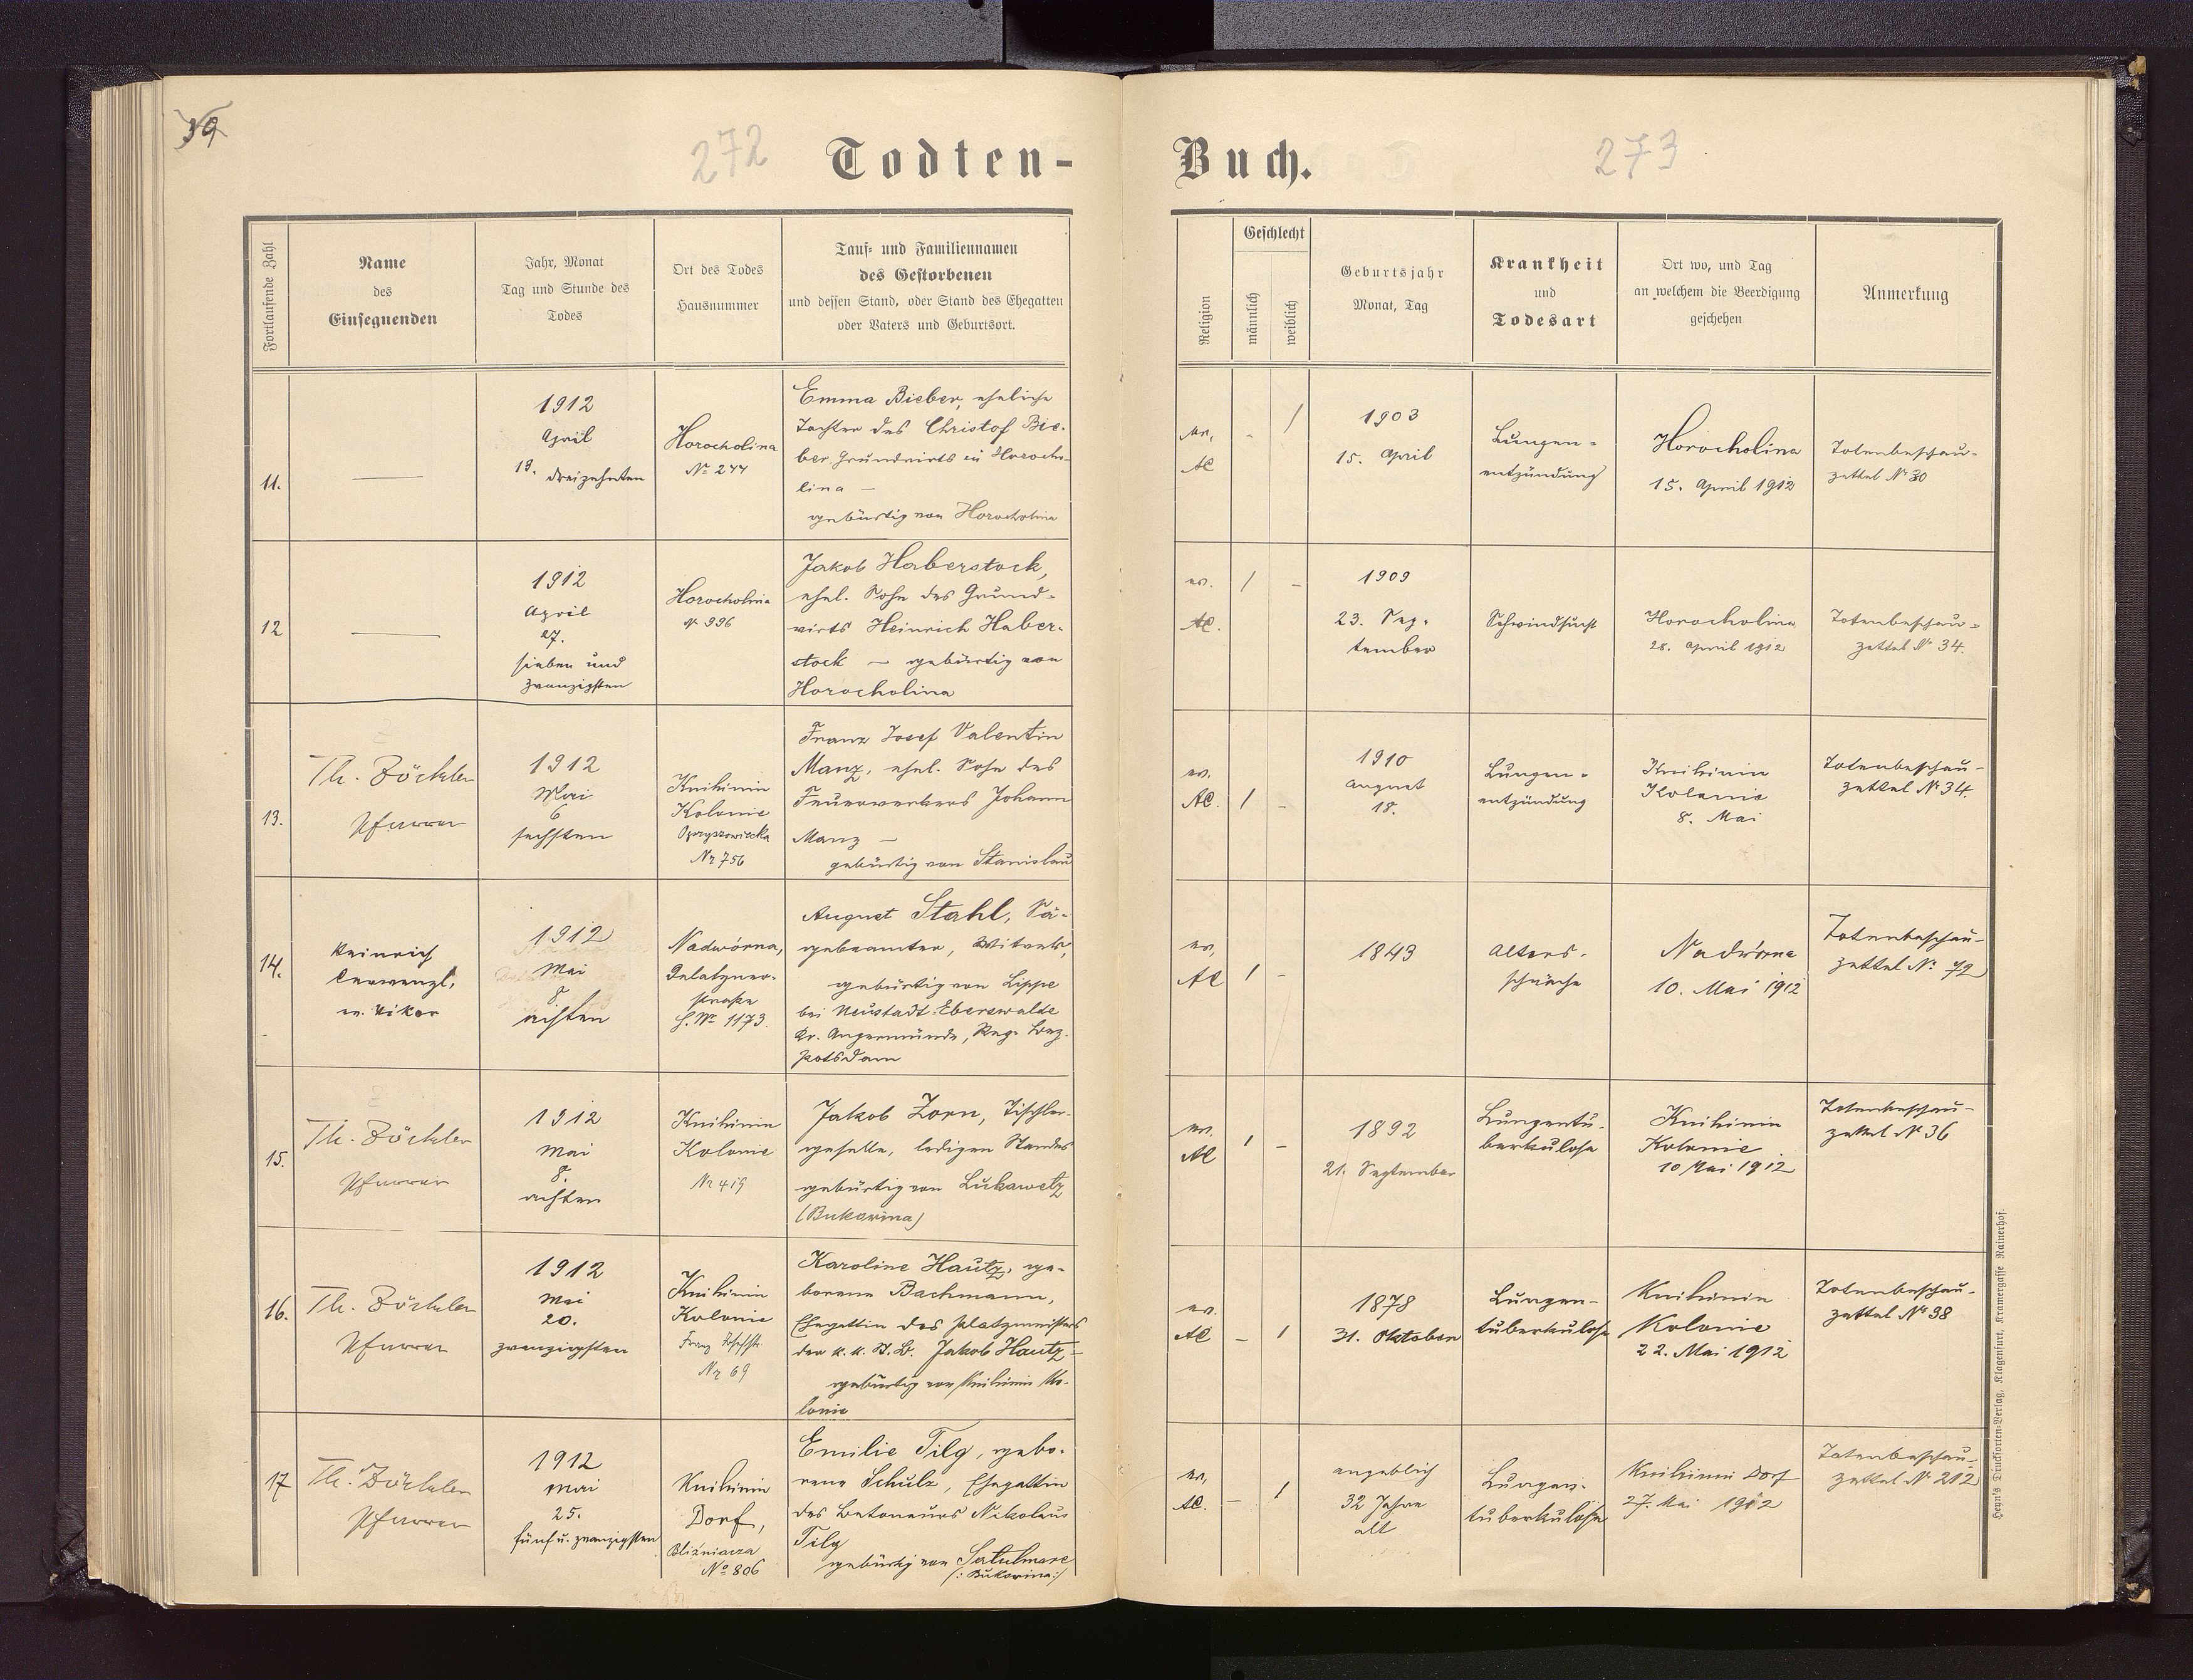 272
Todten-
Buch.
273
Fortlaufende Zahl
Name
des
Einsegnenden
Jahr, Monat
Tag und Stunde des
Todes
Ort des Todes
Hausnummer
Tauf- und Familiennamen
des Gestorbenen
und dessen Stand, oder Stand des Ehegatten
oder Vaters und Geburtsort.
Religion
Geschlecht
männlich
weiblich
Geburtsjahr
Monat, Tag
Krankheit
und
Todesart
Ort wo, und Tag
an welchem die Beerdigung
geschehen
Anmerkung
11.
—
1912
April
13. dreizehnten
Horocholina
No 244
Emma Bieber, eheliche
Tochter des Christof Bie-
ber, Grundwirts in Horocho-
lina —
gebürtig von Horocholina
ev.
AC
- /
1903
15. April
Lungen-
entzündung
Horocholina
15. April 1912
Totenbeschau-
zettel No 30
12
—
1912
April
27.
sieben und
zwanzigsten
Horocholina
No 396
Jakob Haberstock,
ehel. Sohn des Grund-
wirts Heinrich Haber-
stock — gebürtig von
Horocholina
ev.
AC.
/ -
1909
23. Sep-
tember
Schwindsucht
Horocholina
28. April 1912
Totenbeschau-
zettel No 34.
13.
Th. Zöckler
Pfarrer
1912
Mai
6
sechsten
Knihinin
Kolonie
Nr 756
Franz Josef Valentin
Manz, ehel. Sohn des
Feuerwerkers Johann
Manz —
gebürtig von Stanislau
ev.
AC.
/ -
1910
August
18.
Lungen-
entzündung
Knihinin
Kolonie
8. Mai
Totenbeschau-
zettel No 34.
14.
Heinrich
ev. Vikar
1912
Mai
8.
achten
Nadwórna,
Delatyner-
straße
H.No 1173.
August Stahl, Sä-
gebeamter, Witwer,
gebürtig von Lippe
bei Neustadt-Eberswalde
Kr. Angermünde, Reg. Bez.
Potsdam
ev.
AC
/ -
1843
Alters-
schwäche
Nadwórna
10. Mai 1912
Totenbeschau-
zettel No 72
15.
Th. Zöckler
Pfarrer
1912
Mai
8.
achten
Knihinin
Kolonie
Nr 419
Jakob Zorn, Tischler-
geselle, ledigen Standes
gebürtig von Lukawetz
(Bukowina)
ev.
AC
/ -
1892
21. September
Lungentu-
berkulose
Knihinin
Kolonie
10 Mai 1912
Totenbeschau-
zettel No 36
16.
Th. Zöckler
Pfarrer
1912
Mai
20.
zwanzigsten
Knihinin
Kolonie
Franz
Nr 69
Karoline Hautz, ge-
borene Bachmann,
Ehegattin des Platzmeisters
der k. k. St. B. Jakob Hautz-
gebürtig von Knihinin Ko-
lonie
ev.
AC
- /
1878
31. Oktober
Lungen-
tuberkulose
Knihinin
Kolonie
22. Mai 1912
Totenbeschau-
zettel No 38
17
Th. Zöckler
Pfarrer
1912
Mai
25.
fünf u. zwanzigsten
Knihinin
Dorf,
Bliźniacza
No 806
Emilie Tilg, gebo-
rene Schulz, Ehegattin
des Betoneurs Nikolaus
Tilg
gebürtig von Satulmare
(: Bukowina :)
ev.
AC.
- /
angeblich
32 Jahre
alt
Lungen-
tuberkulose
Knihinin Dorf
27. Mai 1912
Totenbeschau-
zettel No 212
Heyn's Drucksorten-Verlag, Klagenfurt, Kramergasse Rainerhof.